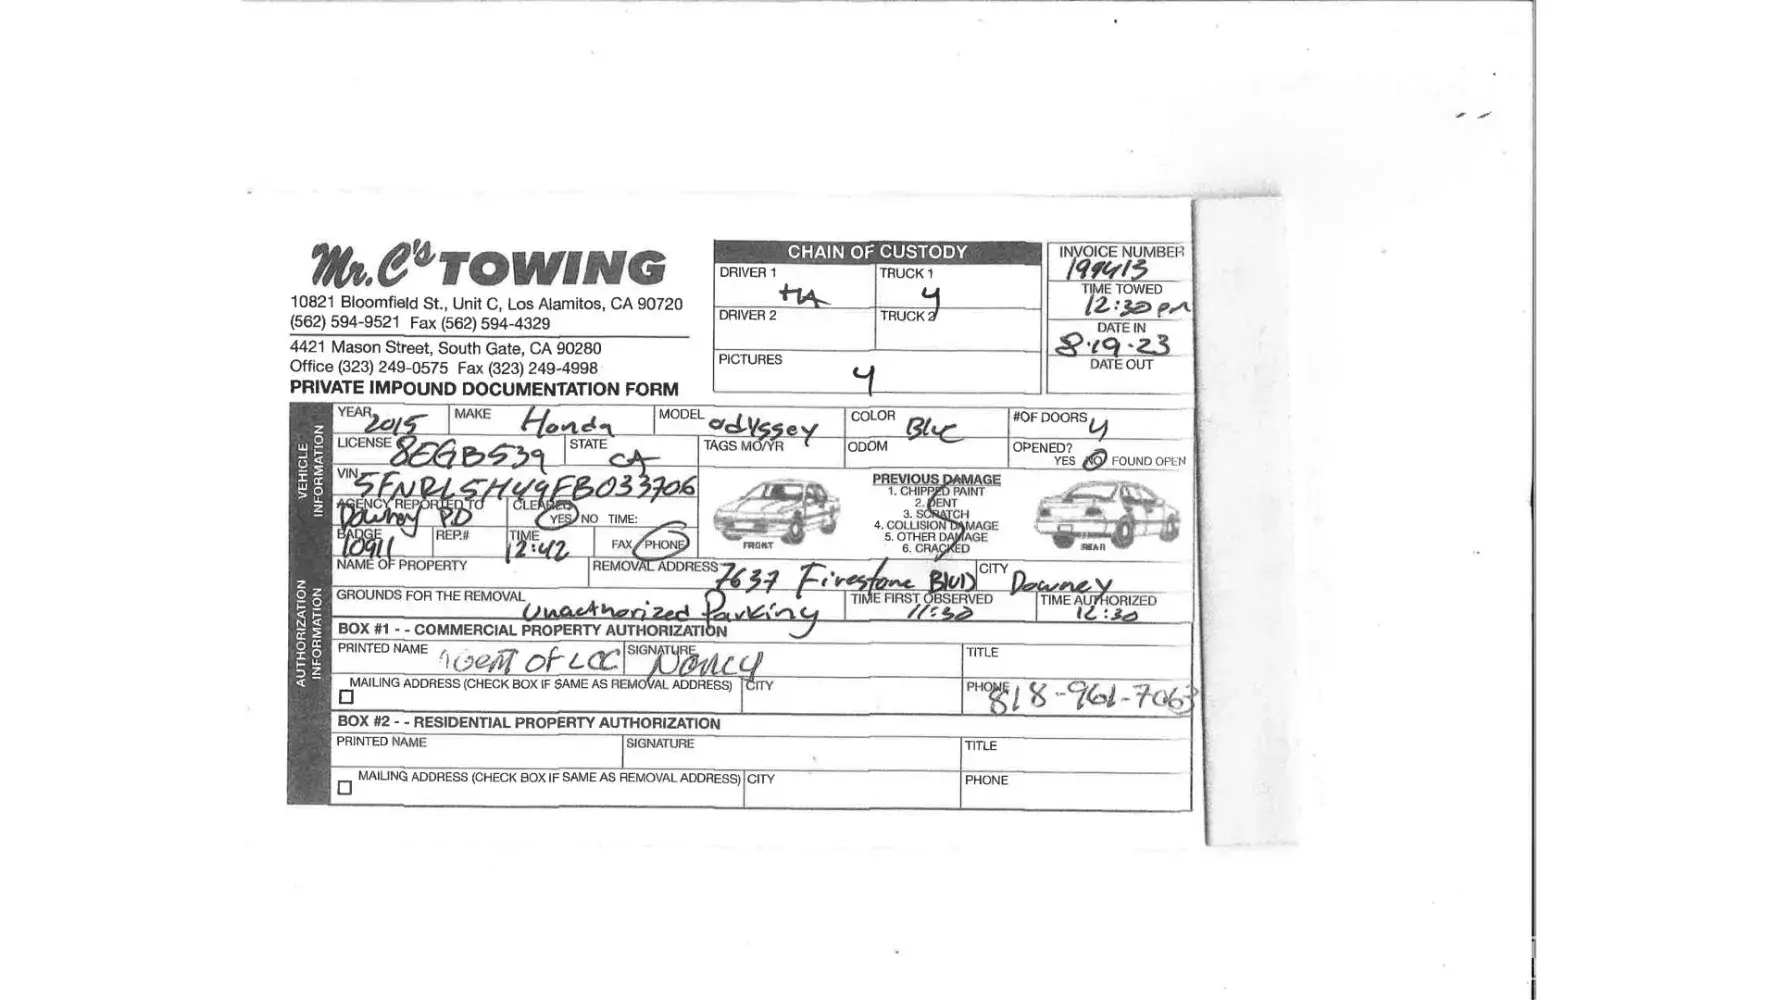 Mr. C's TOWING
10821 Bloomfield St., Unit C, Los Alamitos, CA 90720
(562) 594-9521 Fax (562) 594-4329
4421 Mason Street, South Gate, CA 90280
Office (323) 249-0575 Fax (323) 249-4998
PRIVATE IMPOUND DOCUMENTATION FORM
CHAIN OF CUSTODY
DRIVER 1 HA TRUCK 1 4
DRIVER 2 TRUCK 2
PICTURES 4
INVOICE NUMBER
199413
TIME TOWED
12:30 pm
DATE IN
8-19-23
DATE OUT
VEHICLE INFORMATION
YEAR 2015 MAKE Honda MODEL odyssey COLOR Blue #OF DOORS 4
LICENSE 8EGB539 STATE CA TAGS MO/YR ODOM OPENED?
YES NO FOUND OPEN
VIN 5FNRL5H49FB033706
AGENCY REPORTED TO Downey P.D CLEARED YES NO TIME:
BADGE 10911 REP.# TIME 12:42 FAX PHONE
PREVIOUS DAMAGE
1. CHIPPED PAINT
2. DENT
3. SCRATCH
4. COLLISION DAMAGE
5. OTHER DAMAGE
6. CRACKED
FRONT
REAR
AUTHORIZATION INFORMATION
NAME OF PROPERTY REMOVAL ADDRESS 7637 Firestone Blvd CITY Downey
GROUNDS FOR THE REMOVAL Unauthorized Parking TIME FIRST OBSERVED 11:30 TIME AUTHORIZED 12:30
BOX #1 - - COMMERCIAL PROPERTY AUTHORIZATION
PRINTED NAME Agent OF LCC SIGNATURE Nancy TITLE
MAILING ADDRESS (CHECK BOX IF SAME AS REMOVAL ADDRESS) CITY PHONE 818-961-7063
BOX #2 - - RESIDENTIAL PROPERTY AUTHORIZATION
PRINTED NAME SIGNATURE TITLE
MAILING ADDRESS (CHECK BOX IF SAME AS REMOVAL ADDRESS) CITY PHONE